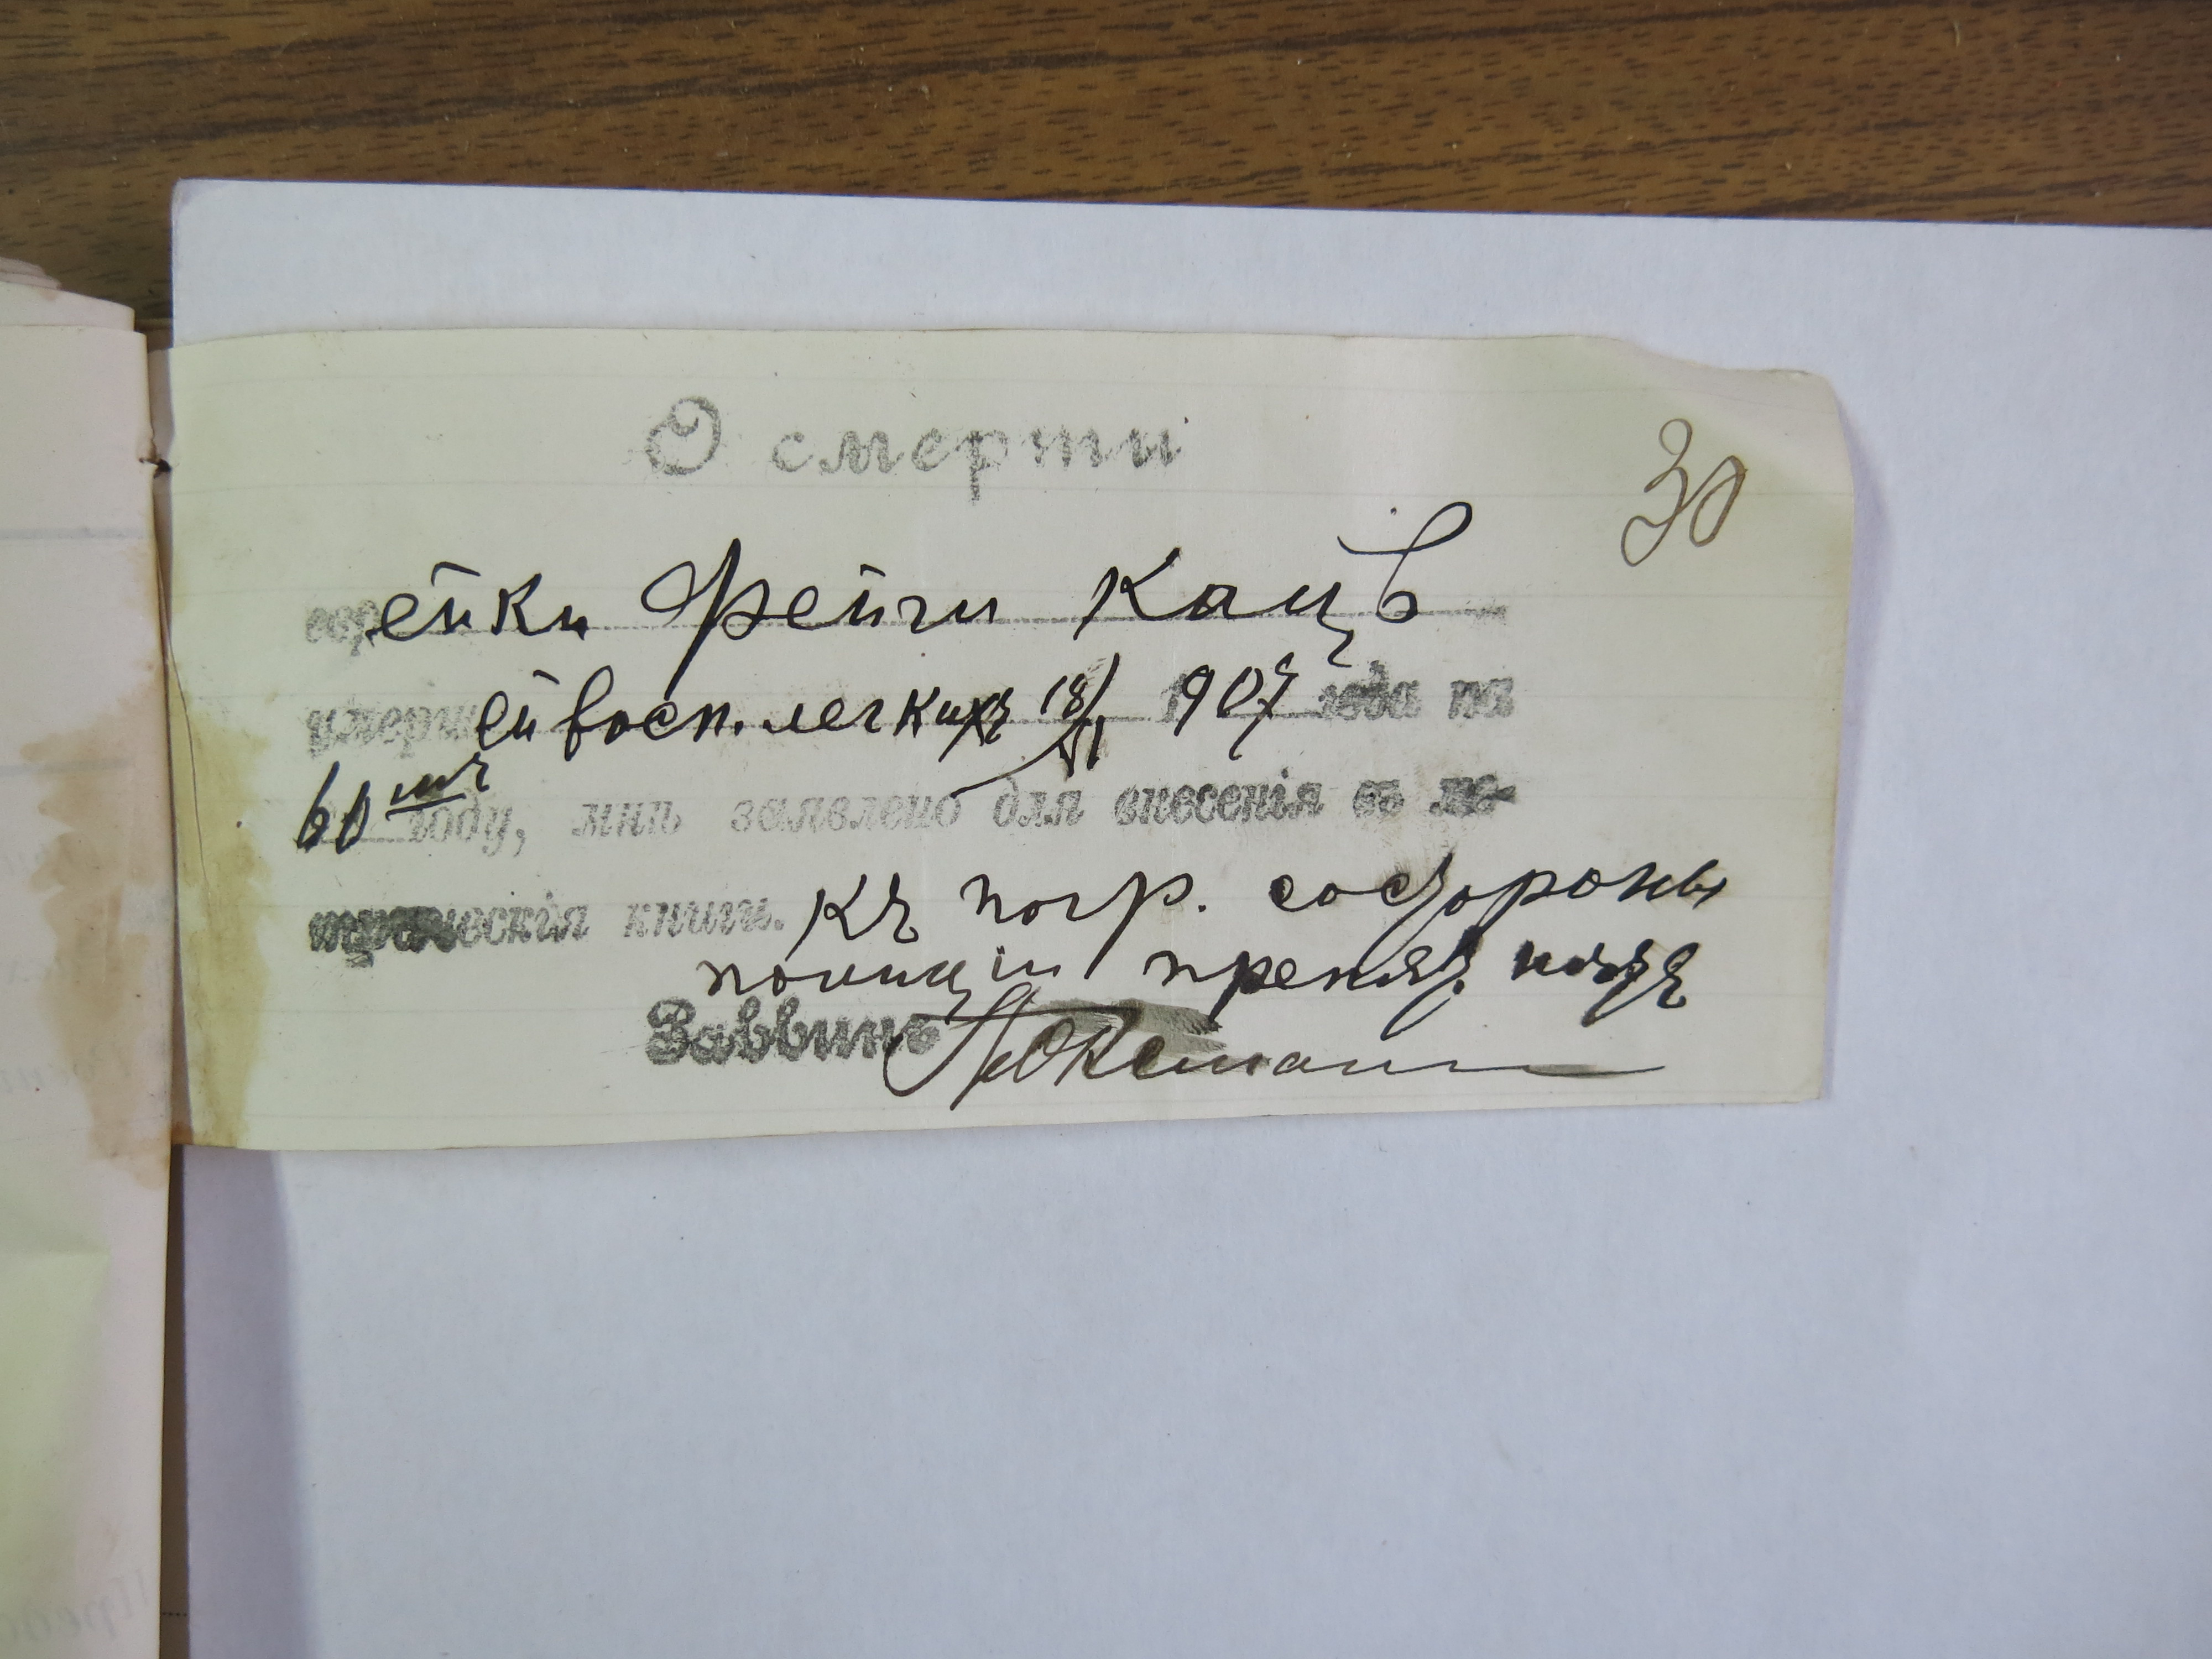 О смерти
30
еврейки Фейги Кацъ
умершей восп. легкихъ 18/VI 1907 года на
60 мъ году, мнѣ заявлено для внесенія въ ме-
трическія книги. Къ погр. со стороны
полиціи препят. нѣтъ
Заввинъ